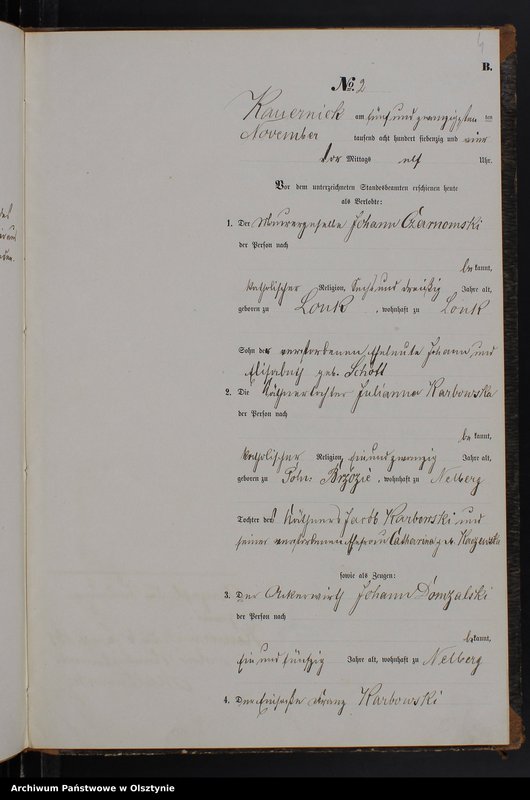 4
B.
No. 2
Kauernick am fünf und zwanzigsten ten
November tausend acht hundert siebenzig und vier
Vor Mittags elf Uhr.
Vor dem unterzeichneten Standesbeamten erschienen heute
als Verlobte:
1. Der Maurergeselle Johann Czarnomski
der Person nach
be kannt,
katholischer Religion, Sechs und dreißig Jahre alt,
geboren zu Lonk, wohnhaft zu Lonk
Sohn der verstorbenen Eheleute Johann und
Elisabeth geb. Schött
2. Die Käthnertochter Julianna Karbowska
der Person nach
be kannt,
katholischer Religion, Ein und zwanzig Jahre alt,
geboren zu Poln. Brzozie, wohnhaft zu Nelberg
Tochter des Käthners Jacob Karbowski und
seiner verstorbenen Ehefrau Catharina geb.
sowie als Zeugen:
3. Der Ackerwirth Johann Domzalski
der Person nach
be kannt,
Ein und fünfzig Jahre alt, wohnhaft zu Nelberg
4. Der Einsasse Franz Karbowski
Archiwum Państwowe w Olsztynie